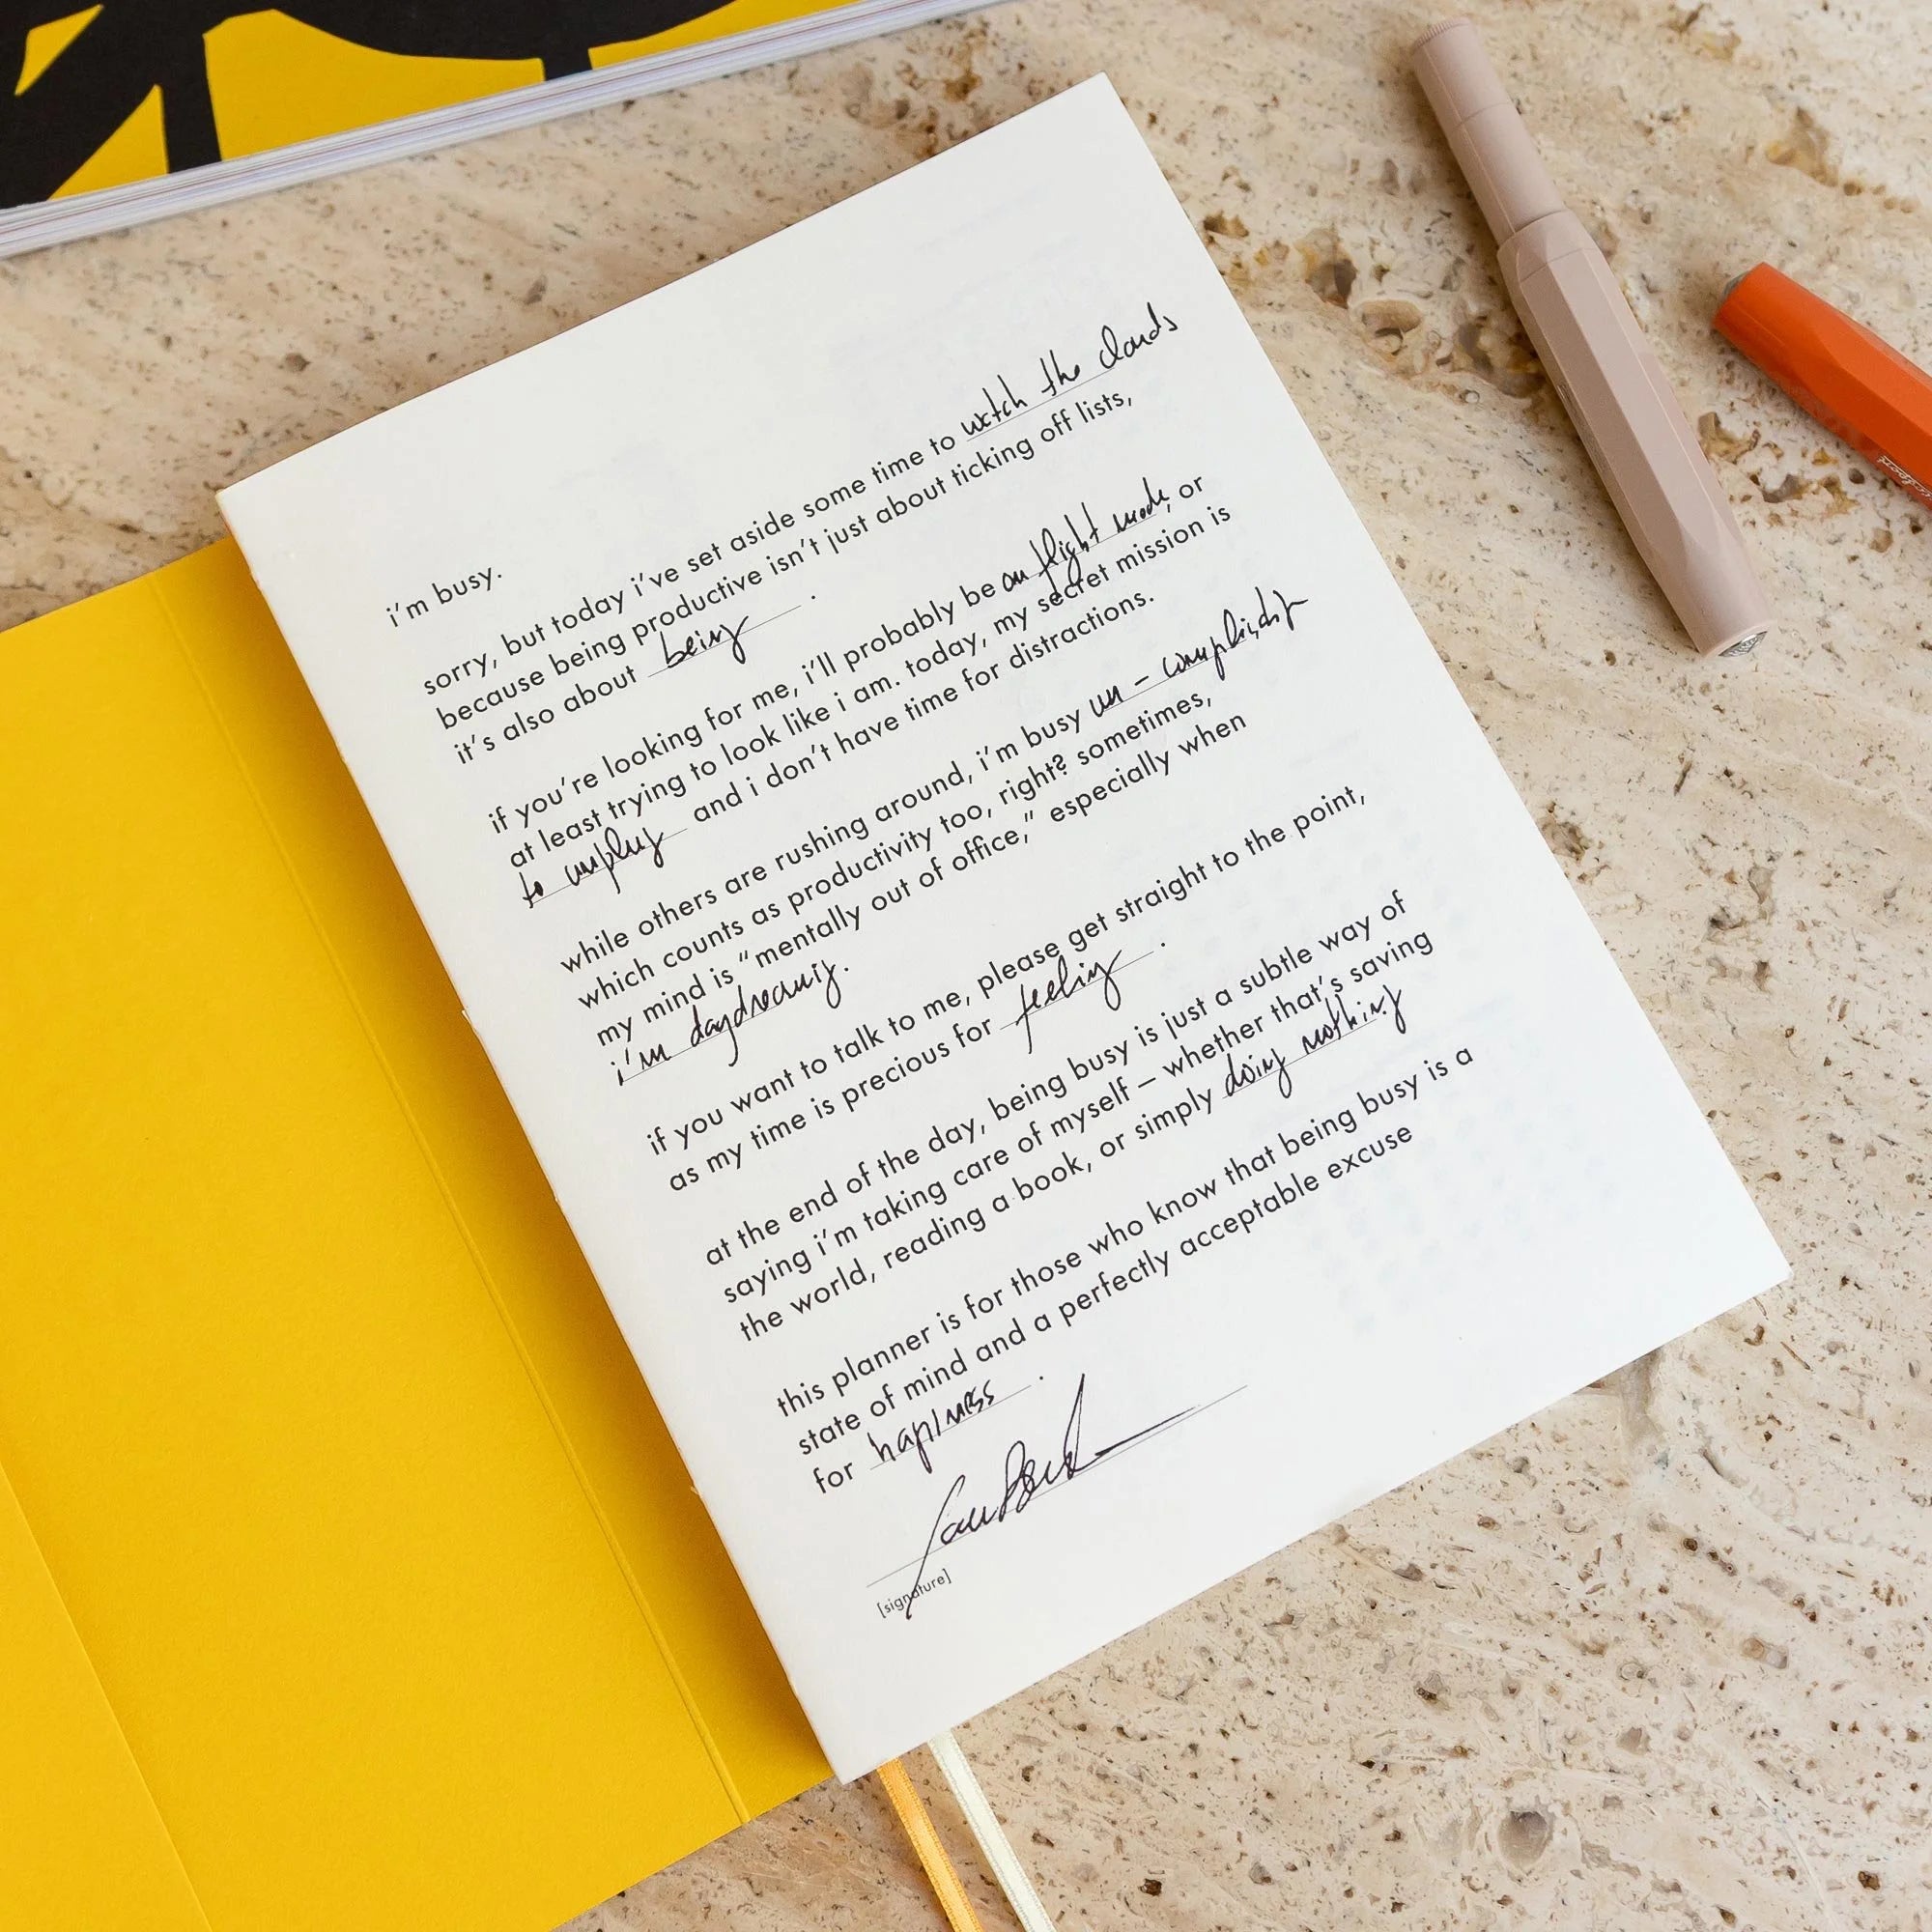 i'm busy.
sorry, but today i've set aside some time to watch the clouds
because being productive isn't just about ticking off lists,
it's also about being.
if you're looking for me, i'll probably be on flight mode, or
at least trying to look like i am. today, my secret mission is
to unplug and i don't have time for distractions.
while others are rushing around, i'm busy un-complicating
which counts as productivity too, right? sometimes,
my mind is "mentally out of office," especially when
i'm daydreaming.
if you want to talk to me, please get straight to the point,
as my time is precious for feeling.
at the end of the day, being busy is just a subtle way of
saying i'm taking care of myself – whether that's saving
the world, reading a book, or simply doing nothing
this planner is for those who know that being busy is a
state of mind and a perfectly acceptable excuse
for hapiness.
[signature]